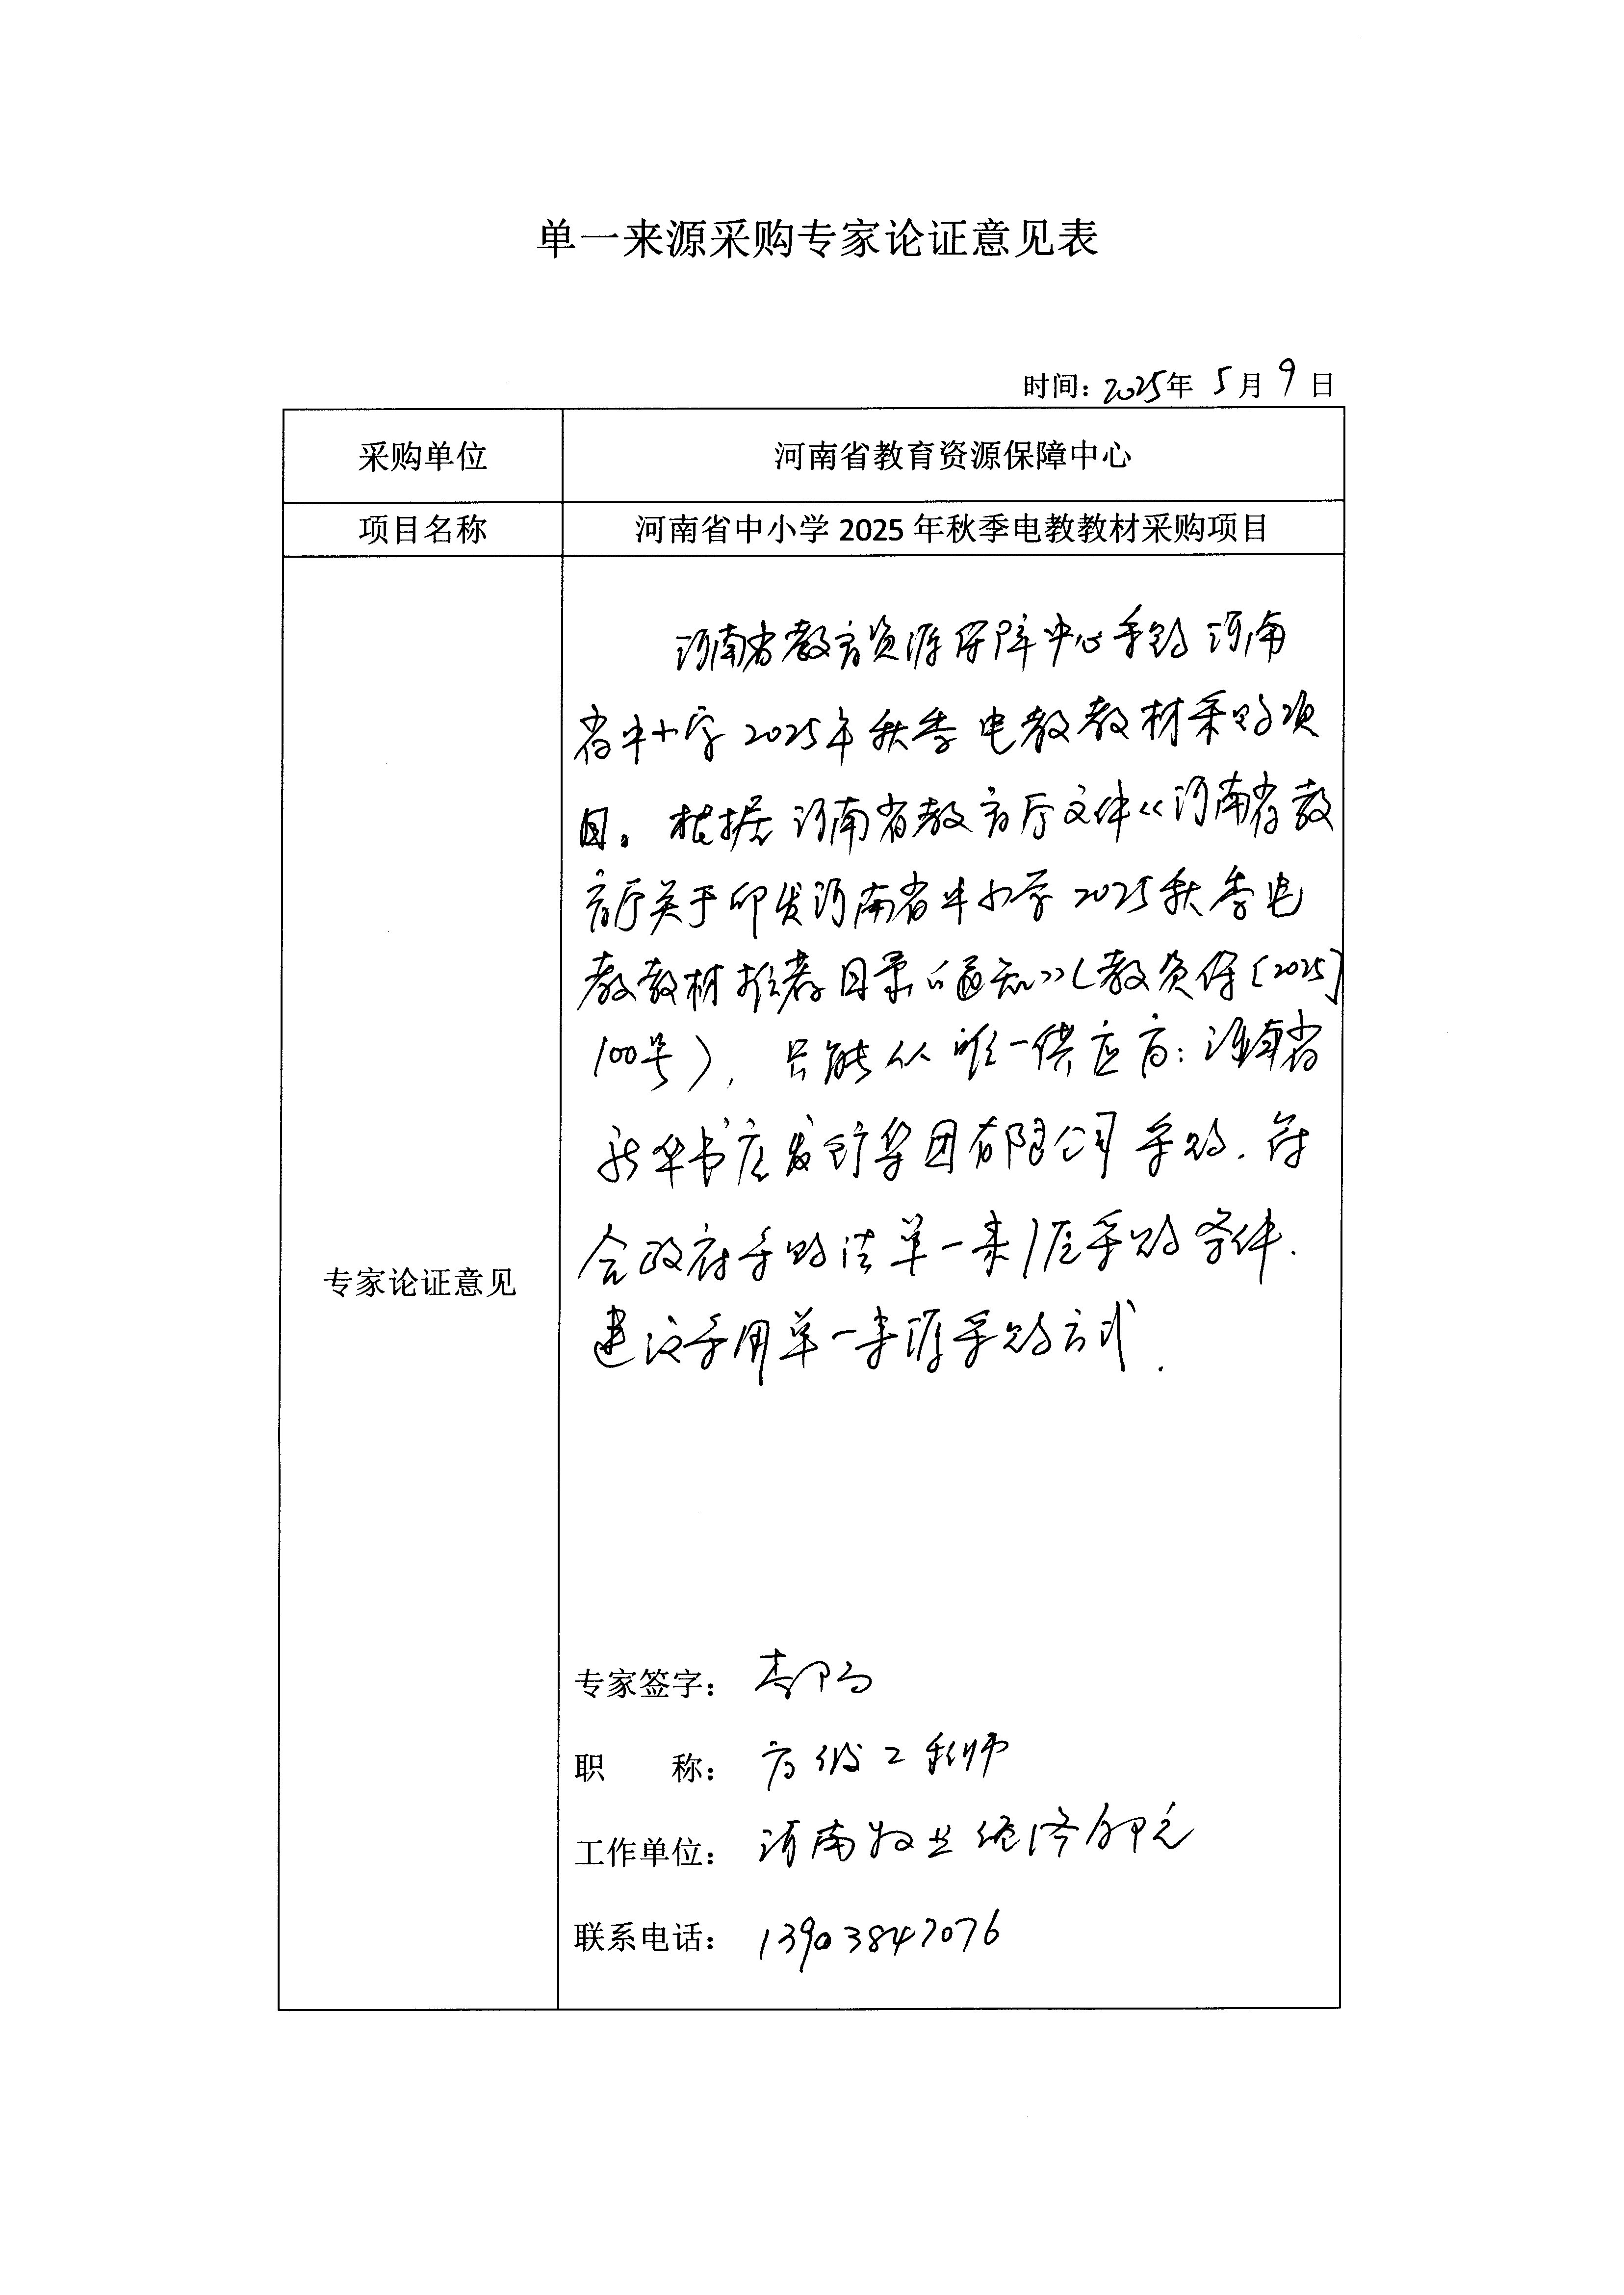 单一来源采购专家论证意见表
时间：2025年 5月 9日
采购单位
河南省教育资源保障中心
项目名称
河南省中小学 2025 年秋季电教教材采购项目
专家论证意见
河南省教育资源保障中心采购河南
省中小学2025年秋季电教教材采购项
目。根据河南省教育厅文件《河南省教
育厅关于印发河南省中小学2025秋季电
教教材推荐目录的通知》(教资保〔2025〕
100号），只能从唯一供应商：河南省
新华书店发行集团有限公司采购.符
合政府采购法单一来源采购条件.
建议采用单一来源采购方式.
专家签字：
职 称：高级工程师
工作单位：河南牧业经济学院
联系电话：13903847076